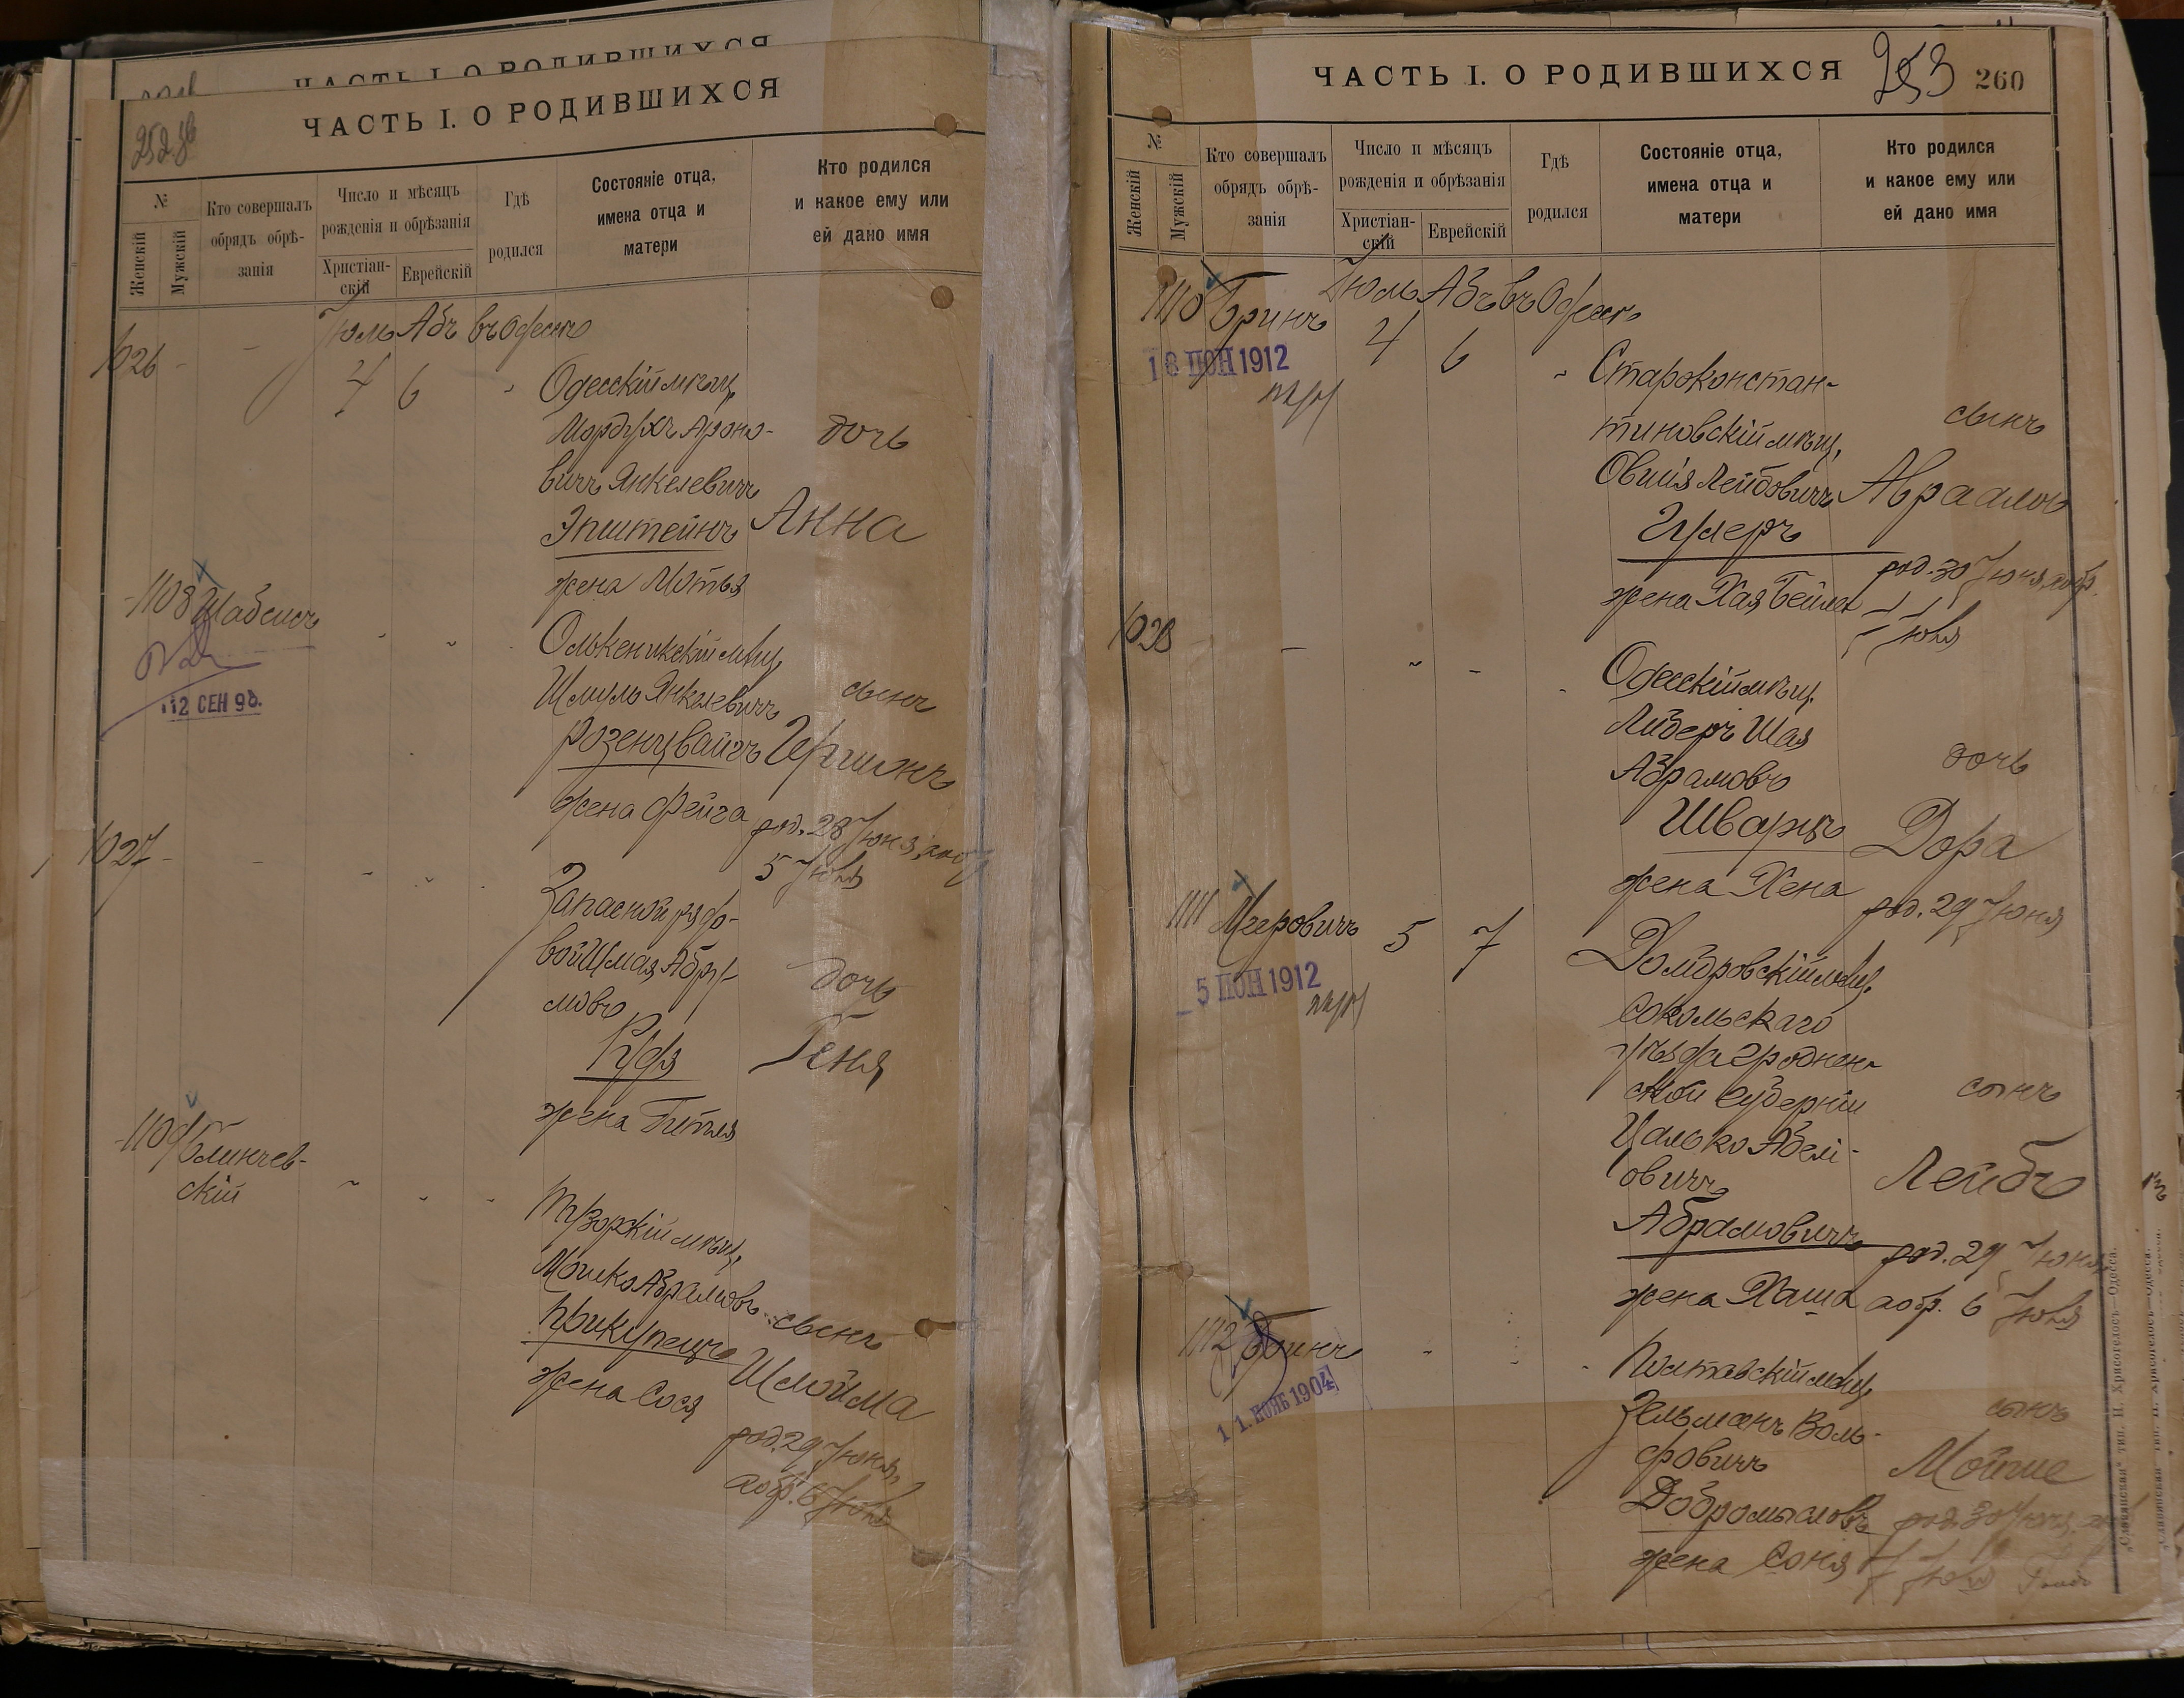 ЧАСТЬ I. О РОДИВШИХСЯ
ЧАСТЬ I. О РОДИВШИХСЯ
252
№
Женскій
Мужскій
Кто совершалъ
обрядъ обрѣ-
занія
Число и мѣсяцъ
рожденія и обрѣзанія
Христіан-
скій
Еврейскій
Гдѣ
родился
Состояніе отца,
имена отца и
матери
Кто родился
и какое ему или
ей дано имя
Іюль Абъ въ Одессѣ
1026 - - 4 6 "
Одесскій мѣщ.
Мордухъ Ароно-
вичъ Янкелевичъ
Эпштейнъ
жена Мотья
дочь
Анна
1108 Шабсисъ
12 СЕН 98.
Олькеникскій мѣщ.
Шмуль Янкелевичъ
Розенцвайгъ
жена Фейга
сынъ
Гершонъ
род. 28 Іюня, а обр
5 Іюля
1027 - -
Запасной рядо-
вой Шмая Абра-
мовъ
Рудя
жена Гитля
дочь
Геня
1109 Блинчев-
скій
мѣщ.
Мошко Абрамовъ
Прикупецъ
жена Сося
сынъ
Шлойма
род. 29 Іюня,
а обр. 6 Іюля
ЧАСТЬ I. О РОДИВШИХСЯ
253
260
№
Женскій
Мужскій
Кто совершалъ
обрядъ обрѣ-
занія
Число и мѣсяцъ
рожденія и обрѣзанія
Христіан-
скій
Еврейскій
Гдѣ
родился
Состояніе отца,
имена отца и
матери
Кто родился
и какое ему или
ей дано имя
Іюль Абъ въ Одессѣ
1110 Бринъ 4 6 "
1912
Староконстан-
тиновскій мѣщ.
Овшія Лейбовичъ
жена Хая Бейла
сынъ
Авраамъ
род. 30 Іюня, а обр.
Іюля
1028 -
Одесскій мѣщ.
Лейберъ Шая
Абрамовъ
Шварцъ
жена Хена
дочь
Дора
род. 29 Іюня
1111 Мееровичъ 5 7
5 1912
мѣщ.
Сокольскаго
уѣзда Гроднен-
ской Губерніи
Цалько Абелі-
овичъ
Абрамовичъ
жена Хаша
сынъ
Лейбъ
род. 29 Іюня
а обр. 6 Іюля
1112 Бринъ
11. НОЯБ 1904
Полтавскій мѣщ.
Зельманъ Воль-
фовичъ
Добромысловъ
жена Соня
сынъ
Мойше
род. 30 Іюня, а обр
7 Іюля
„Славянская“ тип. Н. Хрисогелосъ. Одесса.